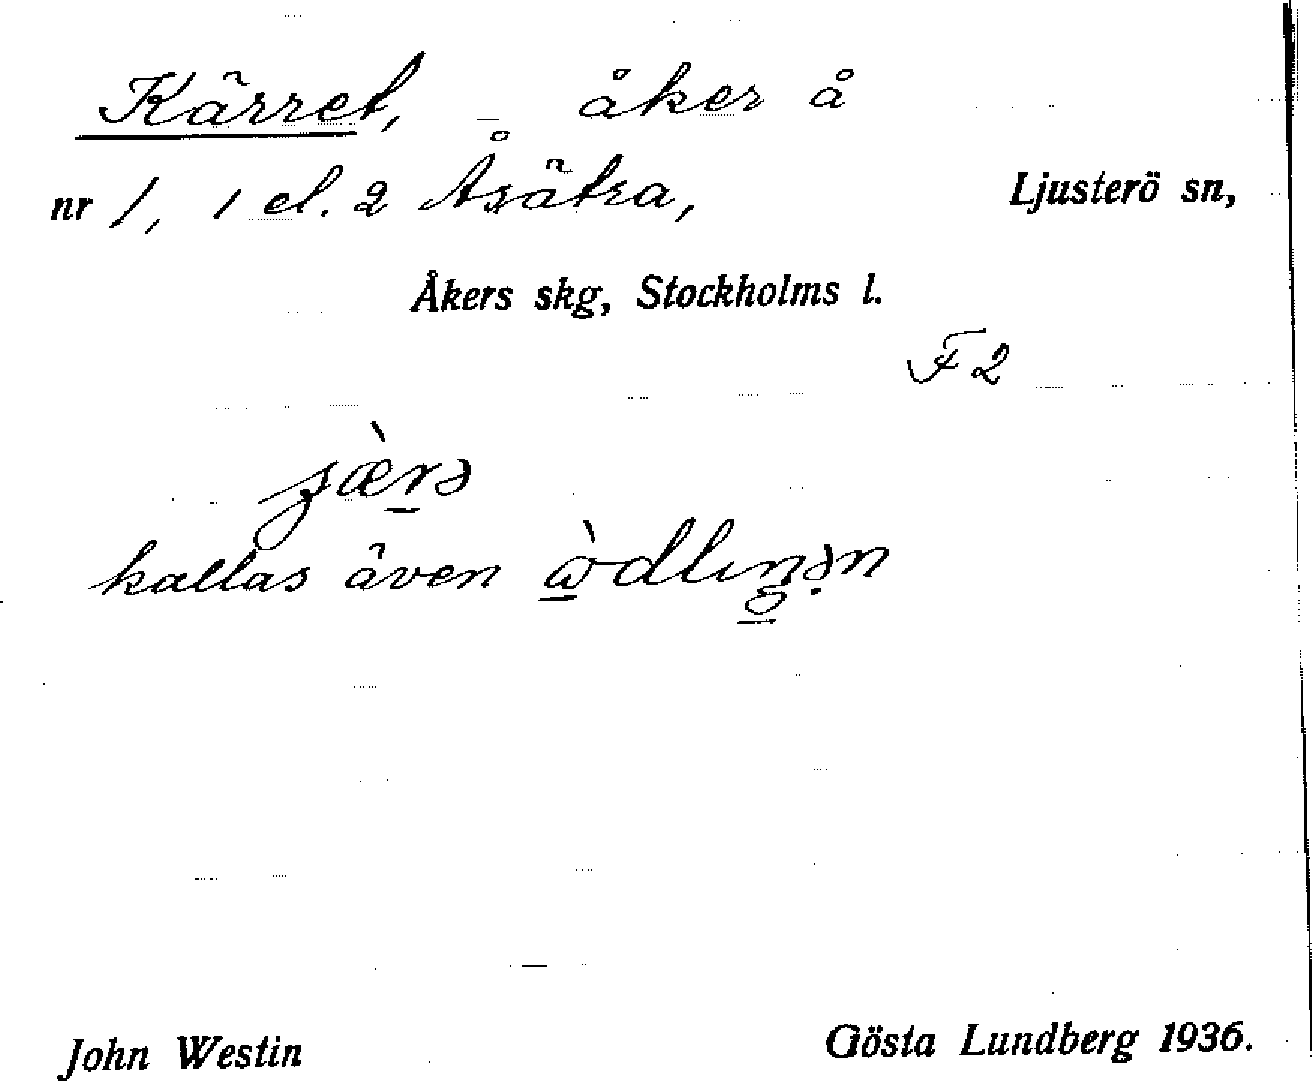 Kärret, - åker å
nr 1, 1 el. 2 Åsätra, Ljusterö sn,
Åkers skg, Stockholms l.
F2
kallas även
John Westin Gösta Lundberg 1936.